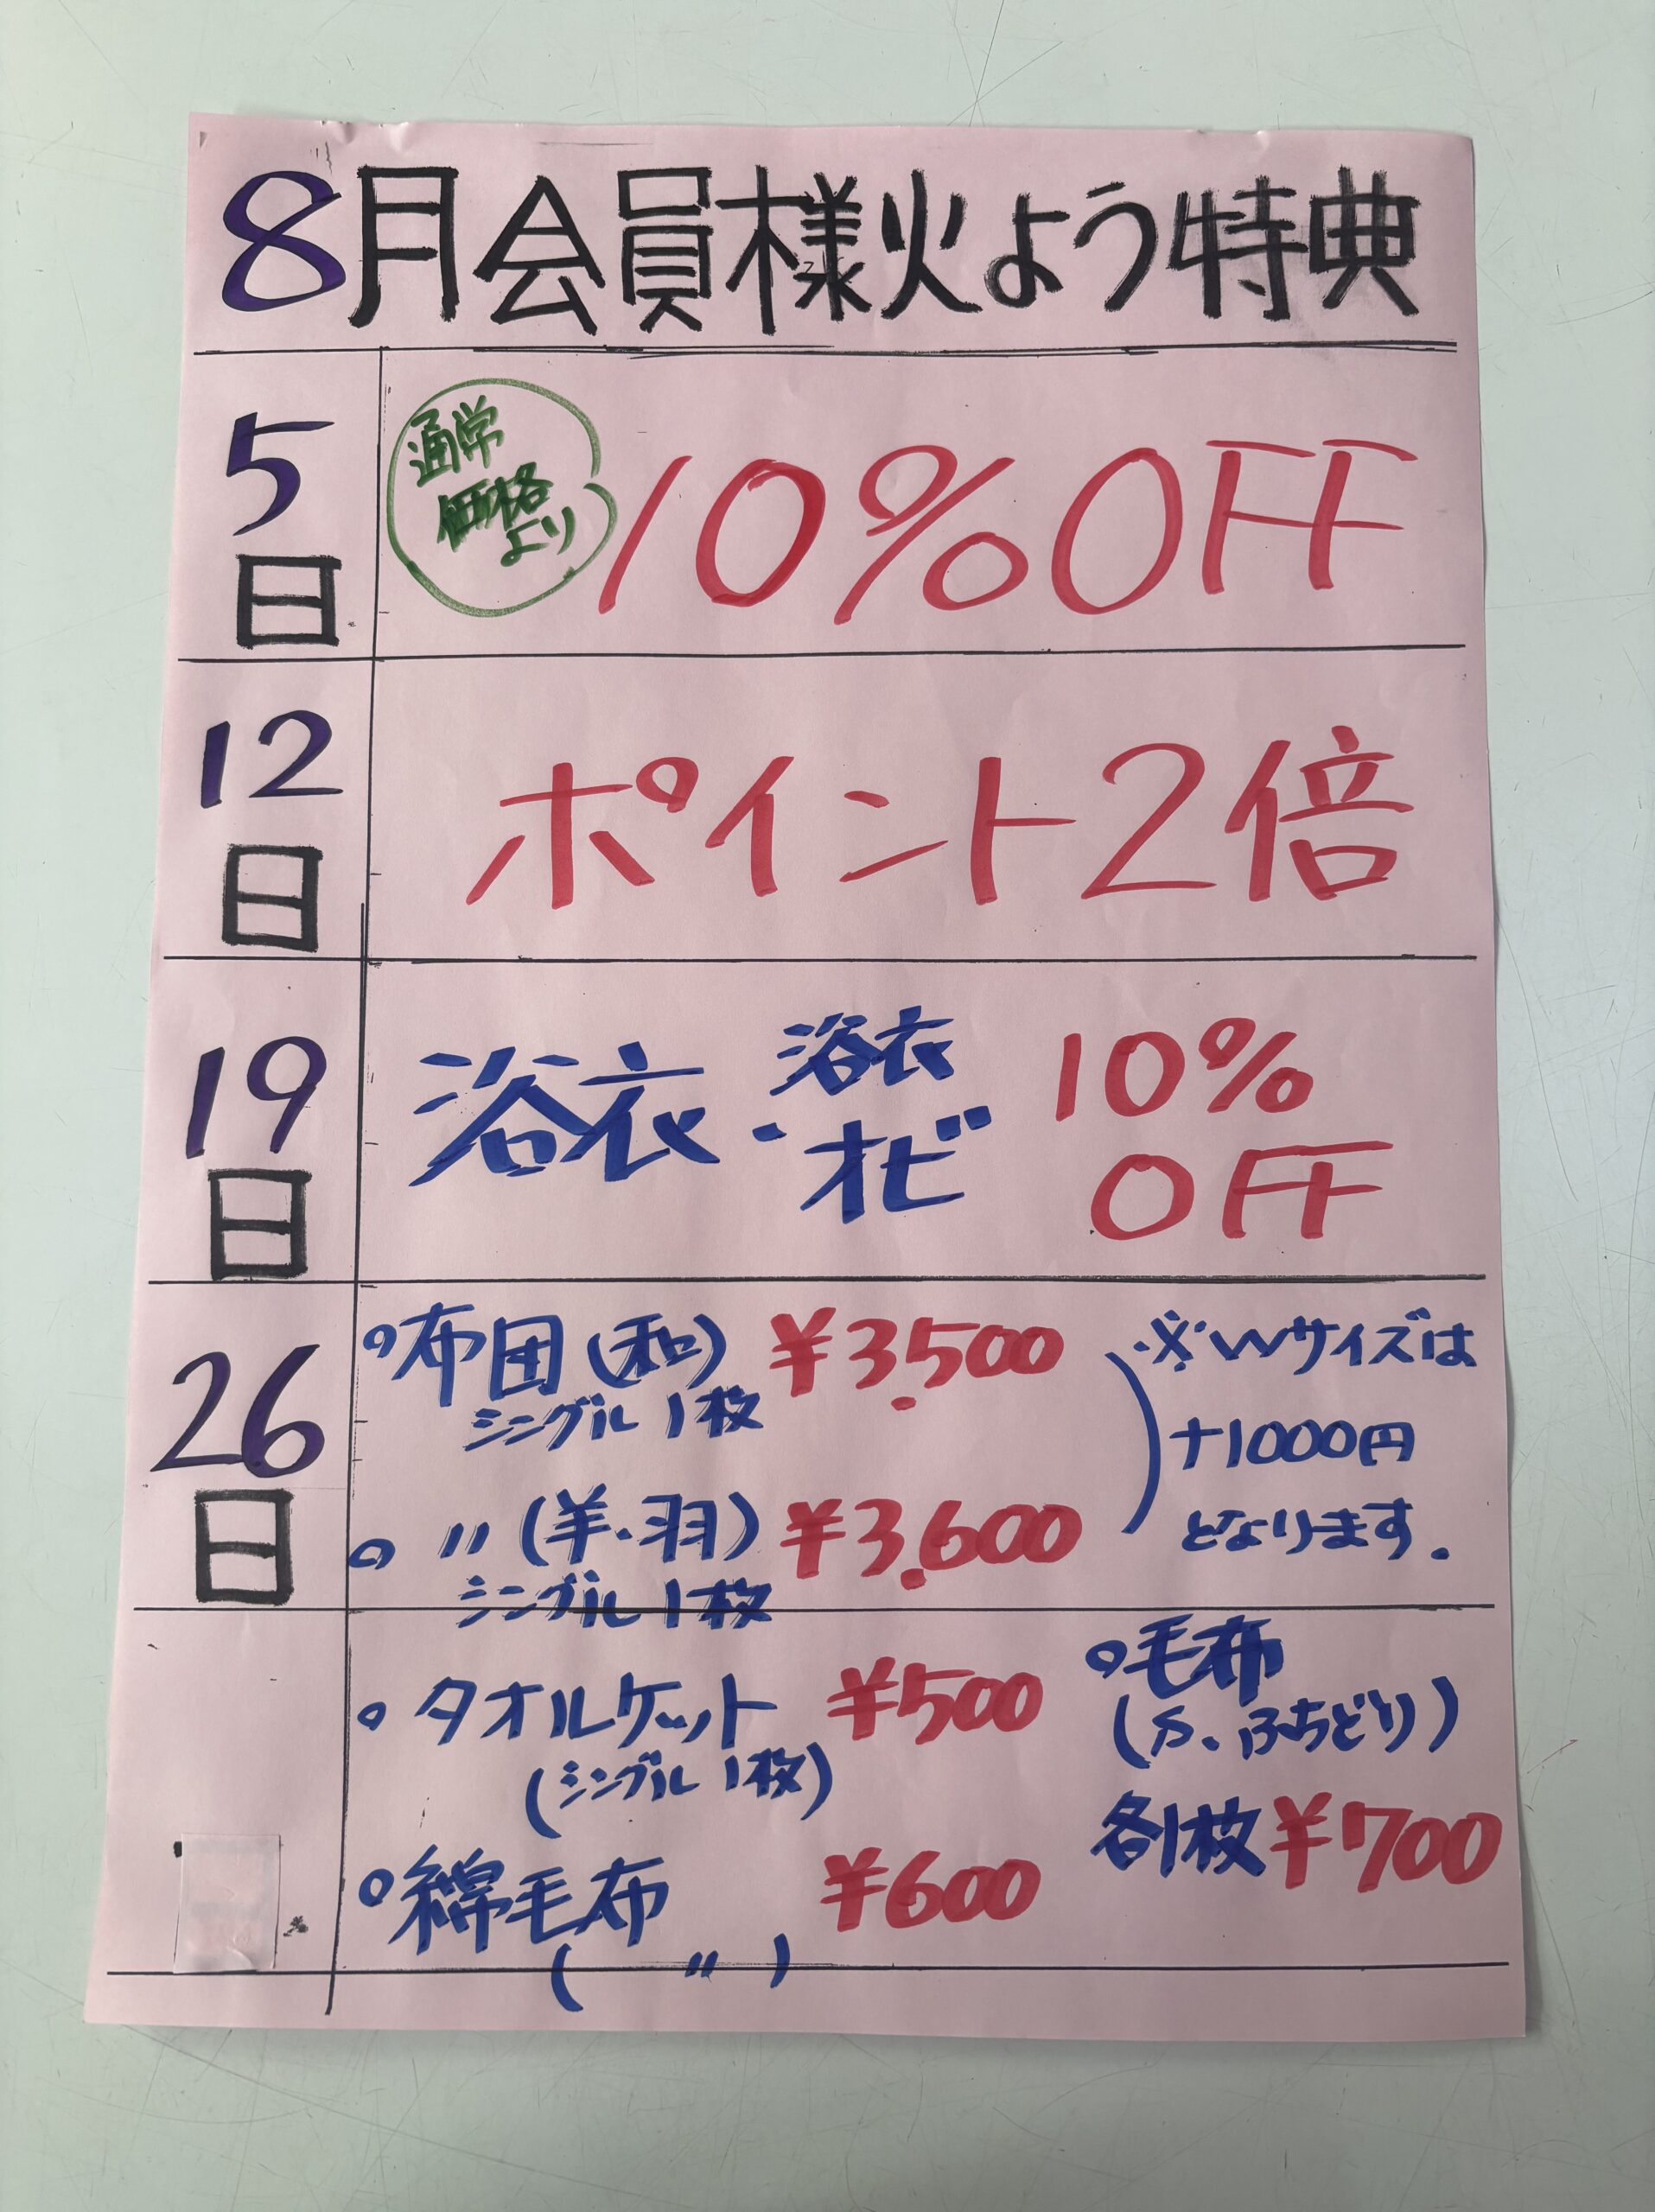 8月会員様火よう特典
5日
通常
価格
より
10%OFF
12日
ポイント2倍
19日
浴衣・浴衣オビ
10%
OFF
26日
◦布団(和) ¥3,500
シングル1枚
◦〃(羊・羽) ¥3,600
シングル1枚
※Wサイズは
+1000円
となります.
◦タオルケット ¥500
(シングル1枚)
◦綿毛布 ¥600
(〃)
◦毛布
(S、ふちどり)
各1枚¥700